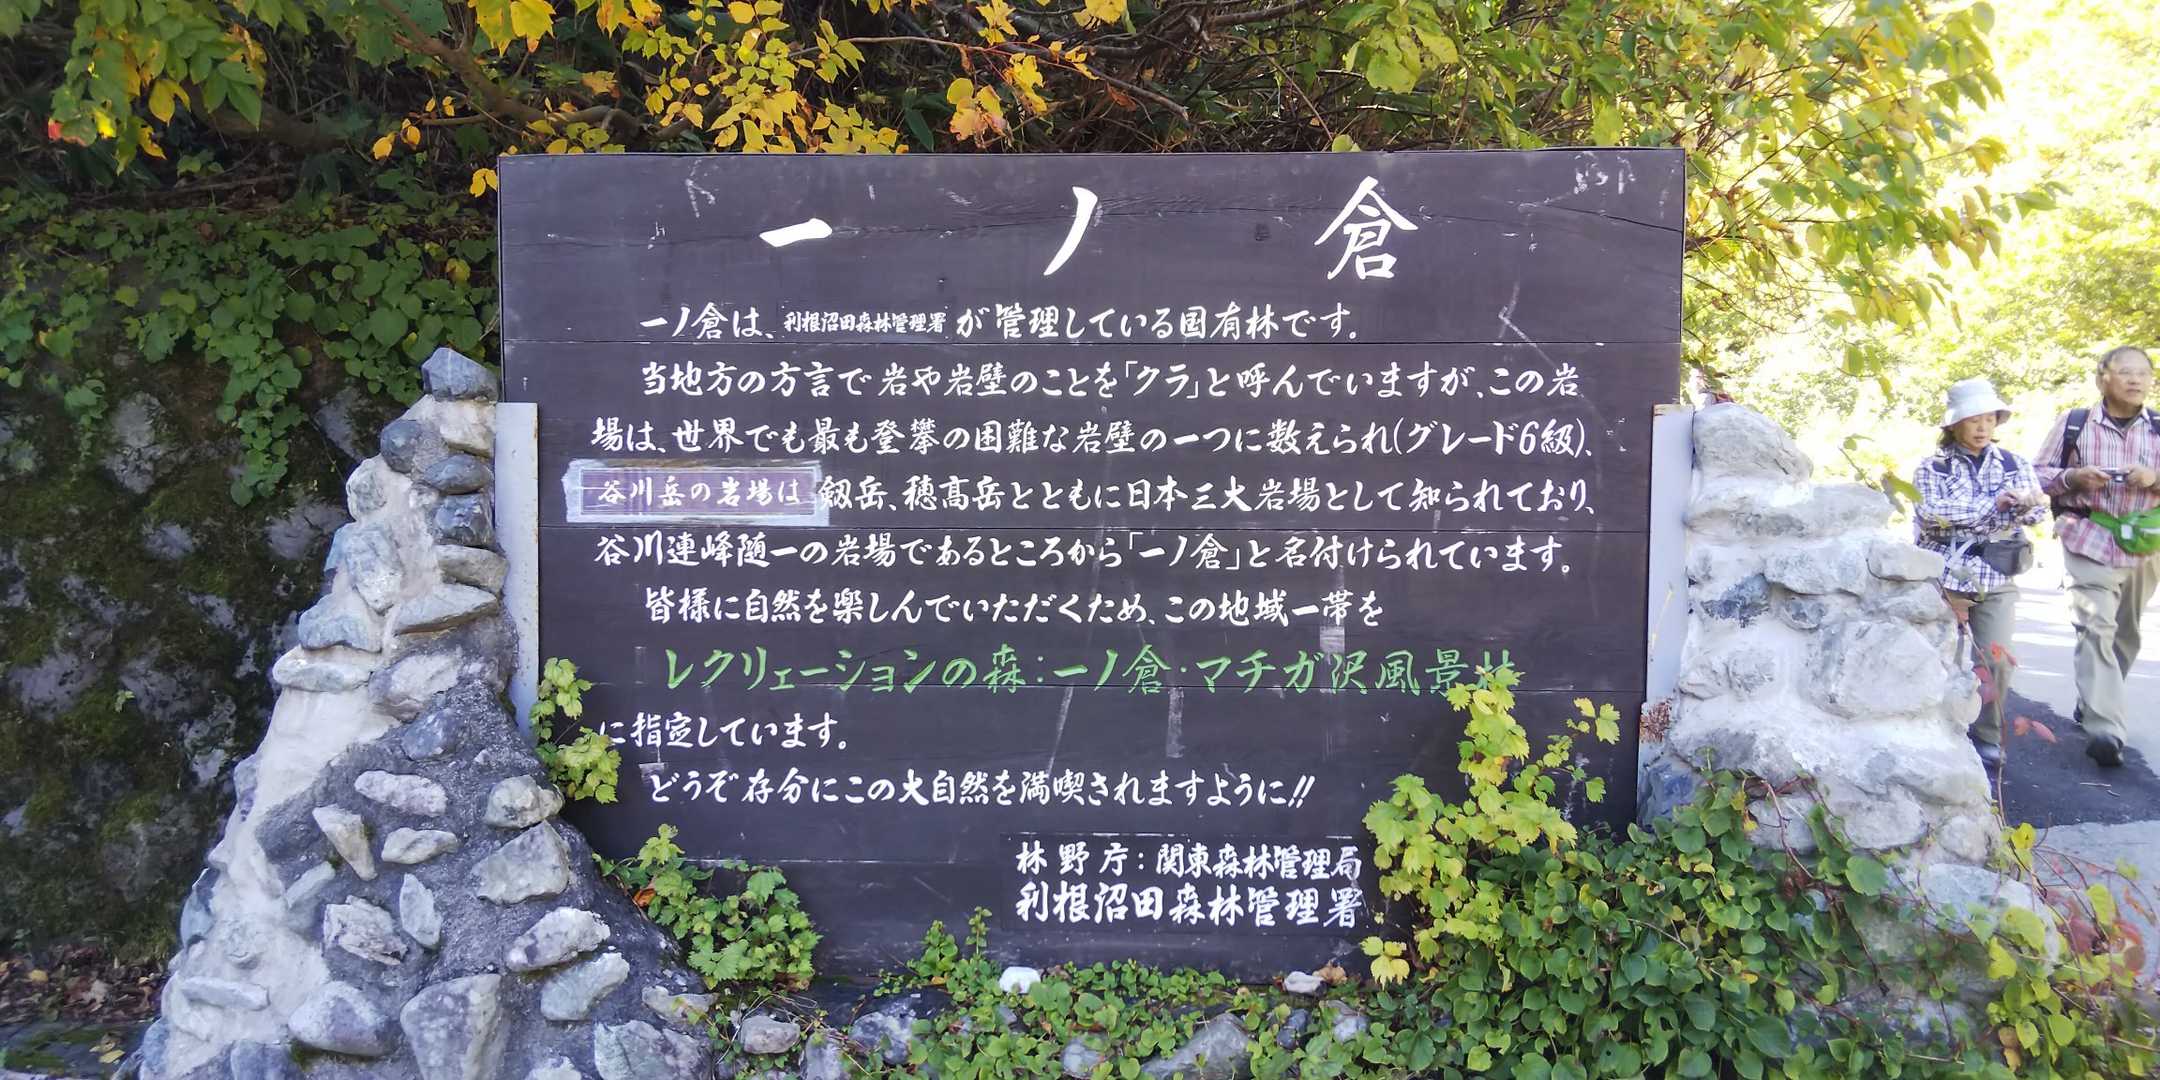 一ノ倉
一ノ倉は、利根沼田森林管理署が管理している国有林です。
当地方の方言で岩や岩壁のことを「クラ」と呼んでいますが、この岩
場は、世界でも最も登攀の困難な岩壁の一つに数えられ(グレード6級)、
谷川岳の岩場は剱岳、穂高岳とともに日本三大岩場として知られており、
谷川連峰随一の岩場であるところから「一ノ倉」と名付けられています。
皆様に自然を楽しんでいただくため、この地域一帯を
レクリェーションの森:一ノ倉・マチガ沢風景林
に指定しています。
どうぞ存分にこの大自然を満喫されますように!!
林野庁:関東森林管理局
利根沼田森林管理署